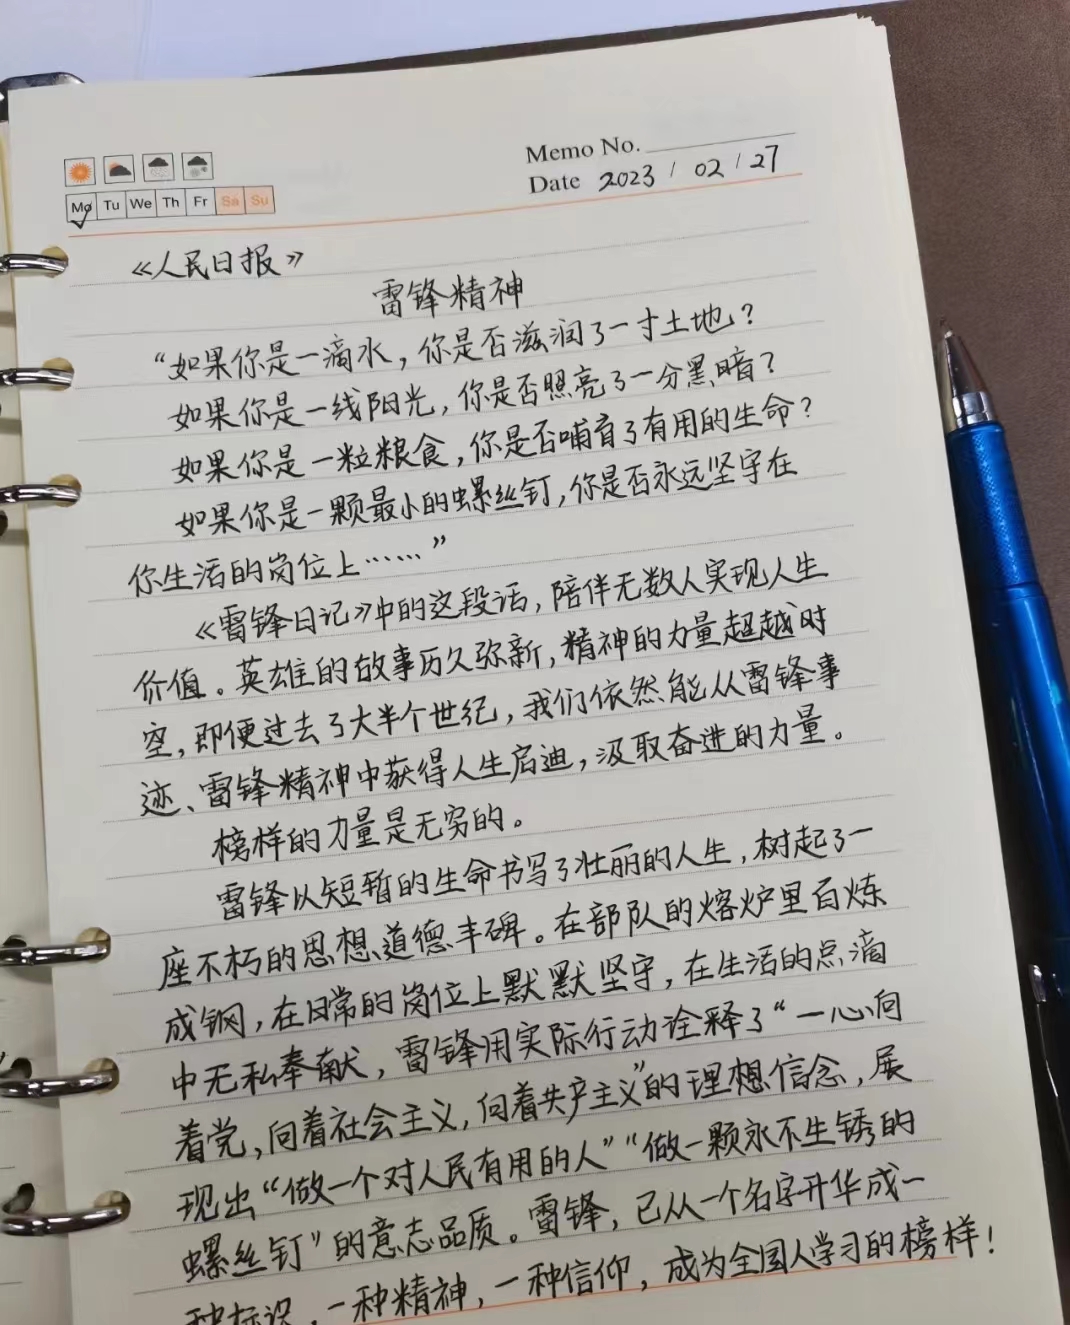 Memo No.
Mo Tu We Th Fr Sa Su
Date 2023 / 02 / 27
《人民日报》
雷锋精神
“如果你是一滴水，你是否滋润了一寸土地？
如果你是一线阳光，你是否照亮了一分黑暗？
如果你是一粒粮食，你是否哺育了有用的生命？
如果你是一颗最小的螺丝钉，你是否永远坚守在
你生活的岗位上……”
《雷锋日记》中的这段话，陪伴无数人实现人生
价值。英雄的故事历久弥新，精神的力量超越时
空，即便过去了大半个世纪，我们依然能从雷锋事
迹、雷锋精神中获得人生启迪，汲取奋进的力量。
榜样的力量是无穷的。
雷锋以短暂的生命书写了壮丽的人生，树起了一
座不朽的思想道德丰碑。在部队的熔炉里百炼
成钢，在日常的岗位上默默坚守，在生活的点滴
中无私奉献，雷锋用实际行动诠释了“一心向
着党，向着社会主义，向着共产主义”的理想信念，展
现出“做一个对人民有用的人”“做一颗永不生锈的
螺丝钉”的意志品质。雷锋，已从一个名字升华成一
种标识，一种精神，一种信仰，成为全国人学习的榜样！